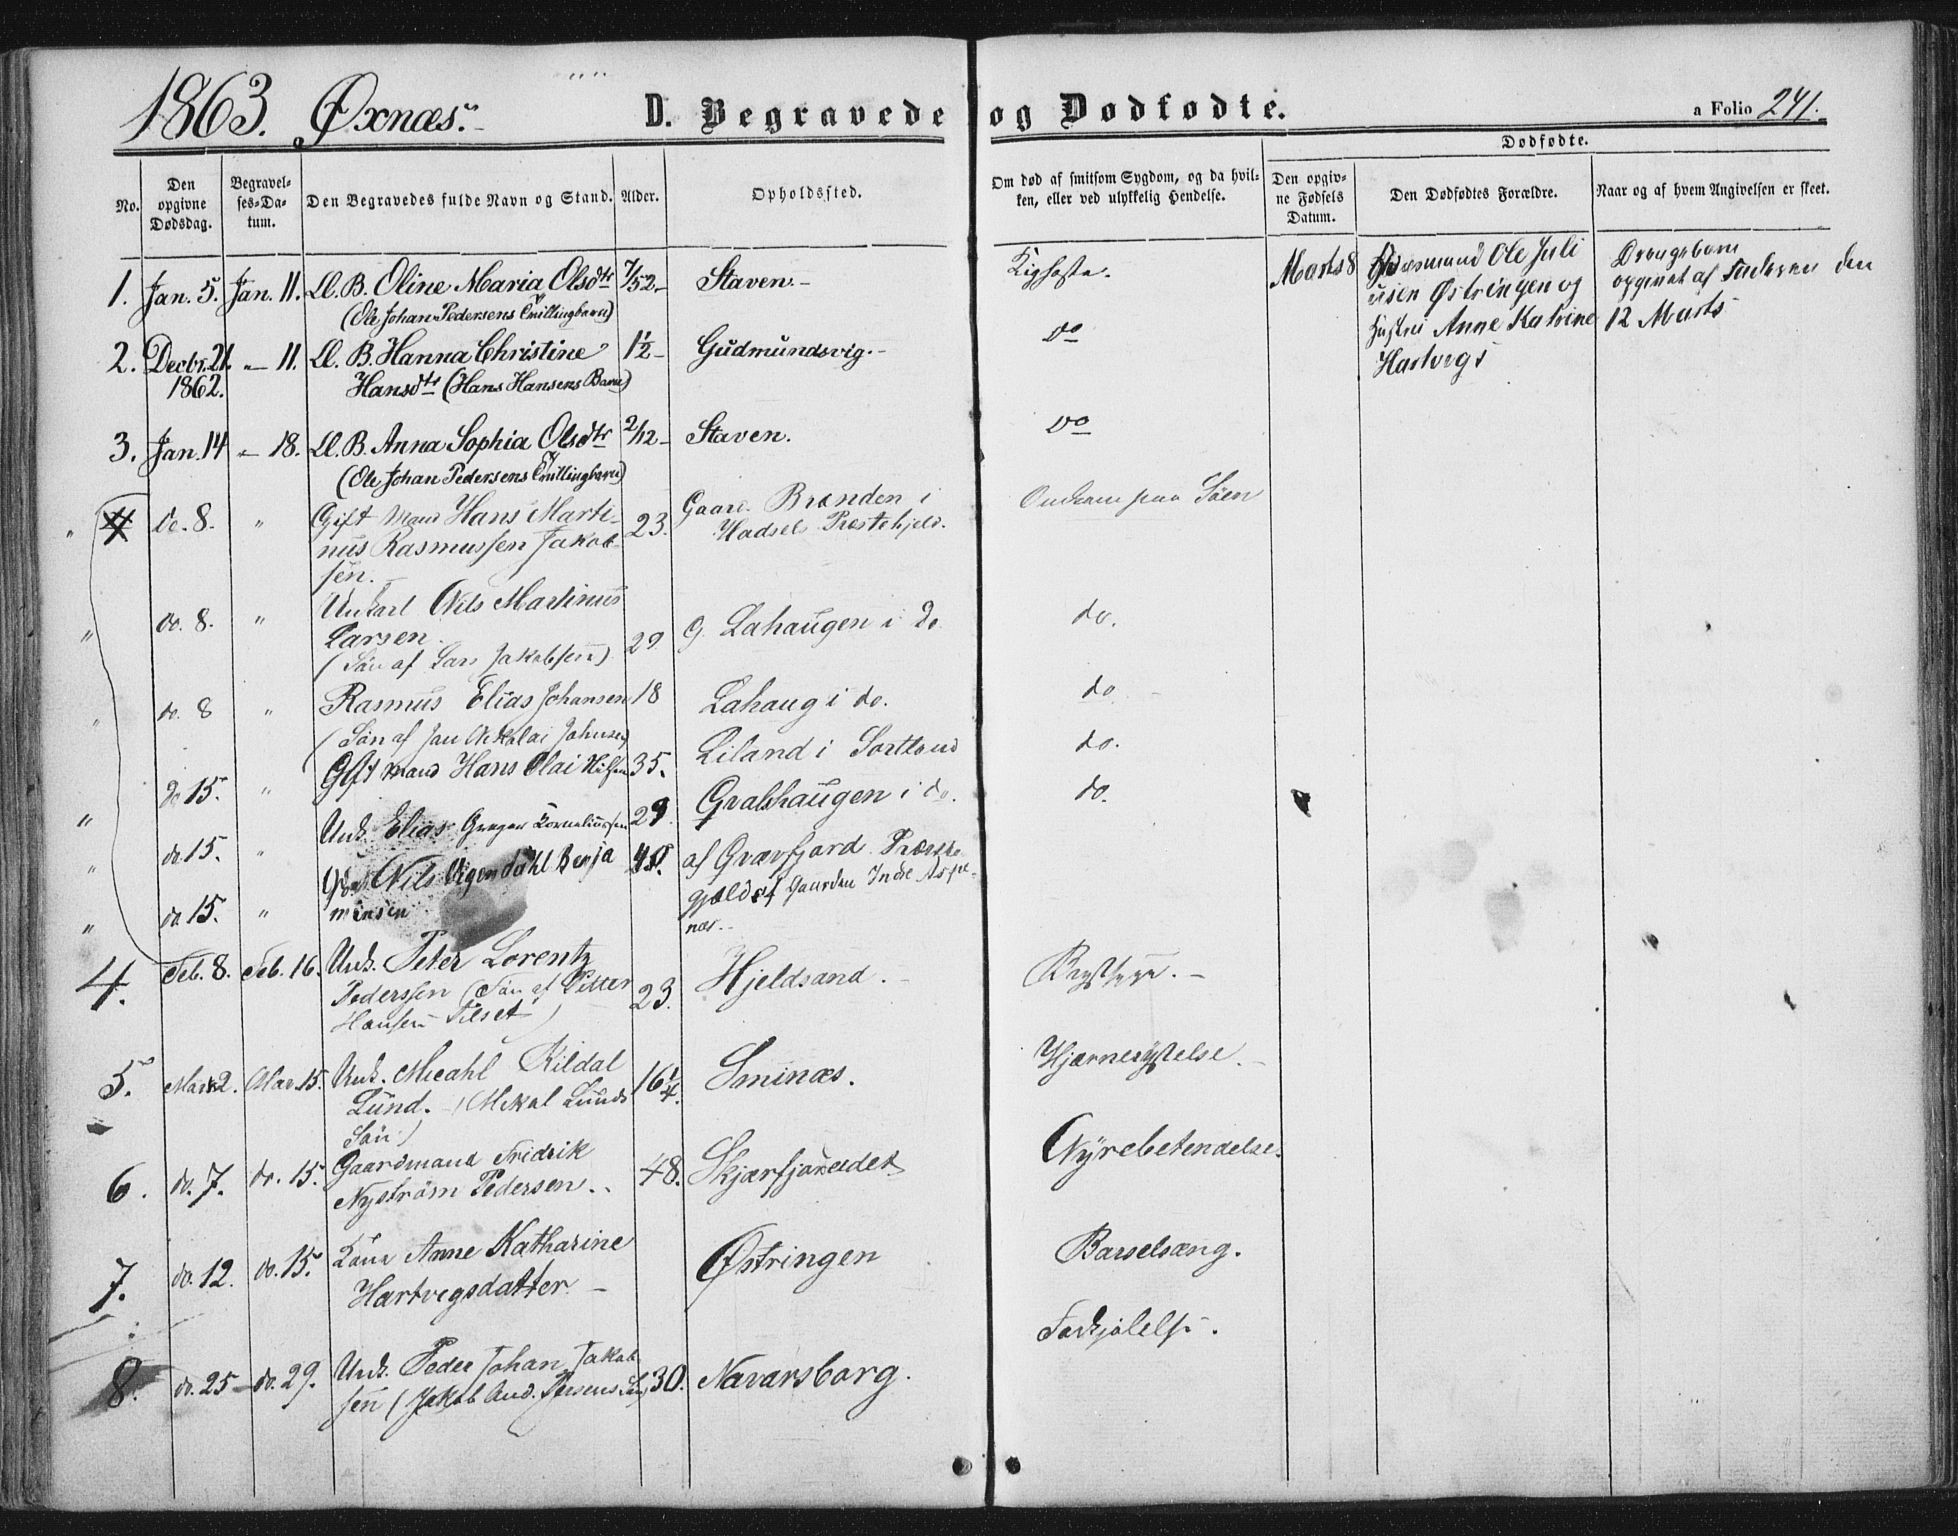 1863. Øxnæs. D. Begravede og Dødfødte. a Folio 241.
No.
Den opgivne Dødsdag.
Begravelses-Datum.
Den Begravedes fulde Navn og Stand.
Alder.
Opholdssted.
Om død af smitsom Sygdom, og da hvilken, eller ved ulykkelig Hendelse.
Dødfødte.
Den opgivne Fødsels Datum.
Den Dødfødtes Forældre.
Naar og af hvem Angivelsen er skeet.
1. Jan. 5. Jan. 11. Ll. B. Oline Maria Olsdtr 7/52 Staven. Kighoste.
(Ole Johan Pedersens Tvillingbarn)
Marts 8 Gaardmand Ole Juli
usen Østringen og
Hustru Anne Katrine
Hartvigs
Drengebarn
opgivet af Faderen den
12 Marts
2. Decbr. 21. " 11. Ll. B. Hanna Christine 1½ Gudmundsvig. do
1862. Hansdtr (Hans Hansens Barn)
3. Jan. 14 " 18. Ll. B. Anna Sophia Olsdtr 2/12 Staven. do
(Ole Johan Pedersens Tvillingbarn)
" 4 do. 8. " Gift Mand Hans Marti- 23. Gaard. Brænden i Omkom paa Søen
nus Rasmussen Jakob- Hadsel Præstegjeld.
sen.
" do. 8. " Unkarl Nils Martinus
Larsen 29 G. Lahaugen i do do.
(Søn af Lars Jakobsen)
" do. 8 " Rasmus Elias Johansen 18 Lahaug i do. do
(Søn af Jan Nikolai Johnsen)
" do 15. " Gift Mand Hans Olai Nilsen 35. Liland i Sortland do.
" do. 15. " Unk. Elias Greger Korneliussen 29 Gvalshaugen i do. do.
" do 15. " Nils Benja 40. af Gravfjord Præste
minsen gjeld af Gaarden Indre
næs.
4. Feb. 8. Feb. 16. Unk. Peter Lorentz
Pederssen (Søn af Petter 23. Hjeldsand. Brystsyge.
Hansen Tilset)
5. Mar. 2. Mar. 15. Unk. Micahl Kildal 16¼. Sminæs. Hjærnerystelse.
Lund. (Mikal Lunds
Søn)
6. do. 7. do. 15. Gaardmand Fridrik 48. Skjærfjordet Nyrebetendelse.
Nyström Pedersen.
7. do. 12. do. 15. Kone Anne Katharine Østringen Barselsæng.
Hartvigsdatter.
8. do. 25 do. 29. Unk. Peder Johan Jakob 30. Navarsborg. Forkjølelse.
sen (Jakob And. Persens Søn)